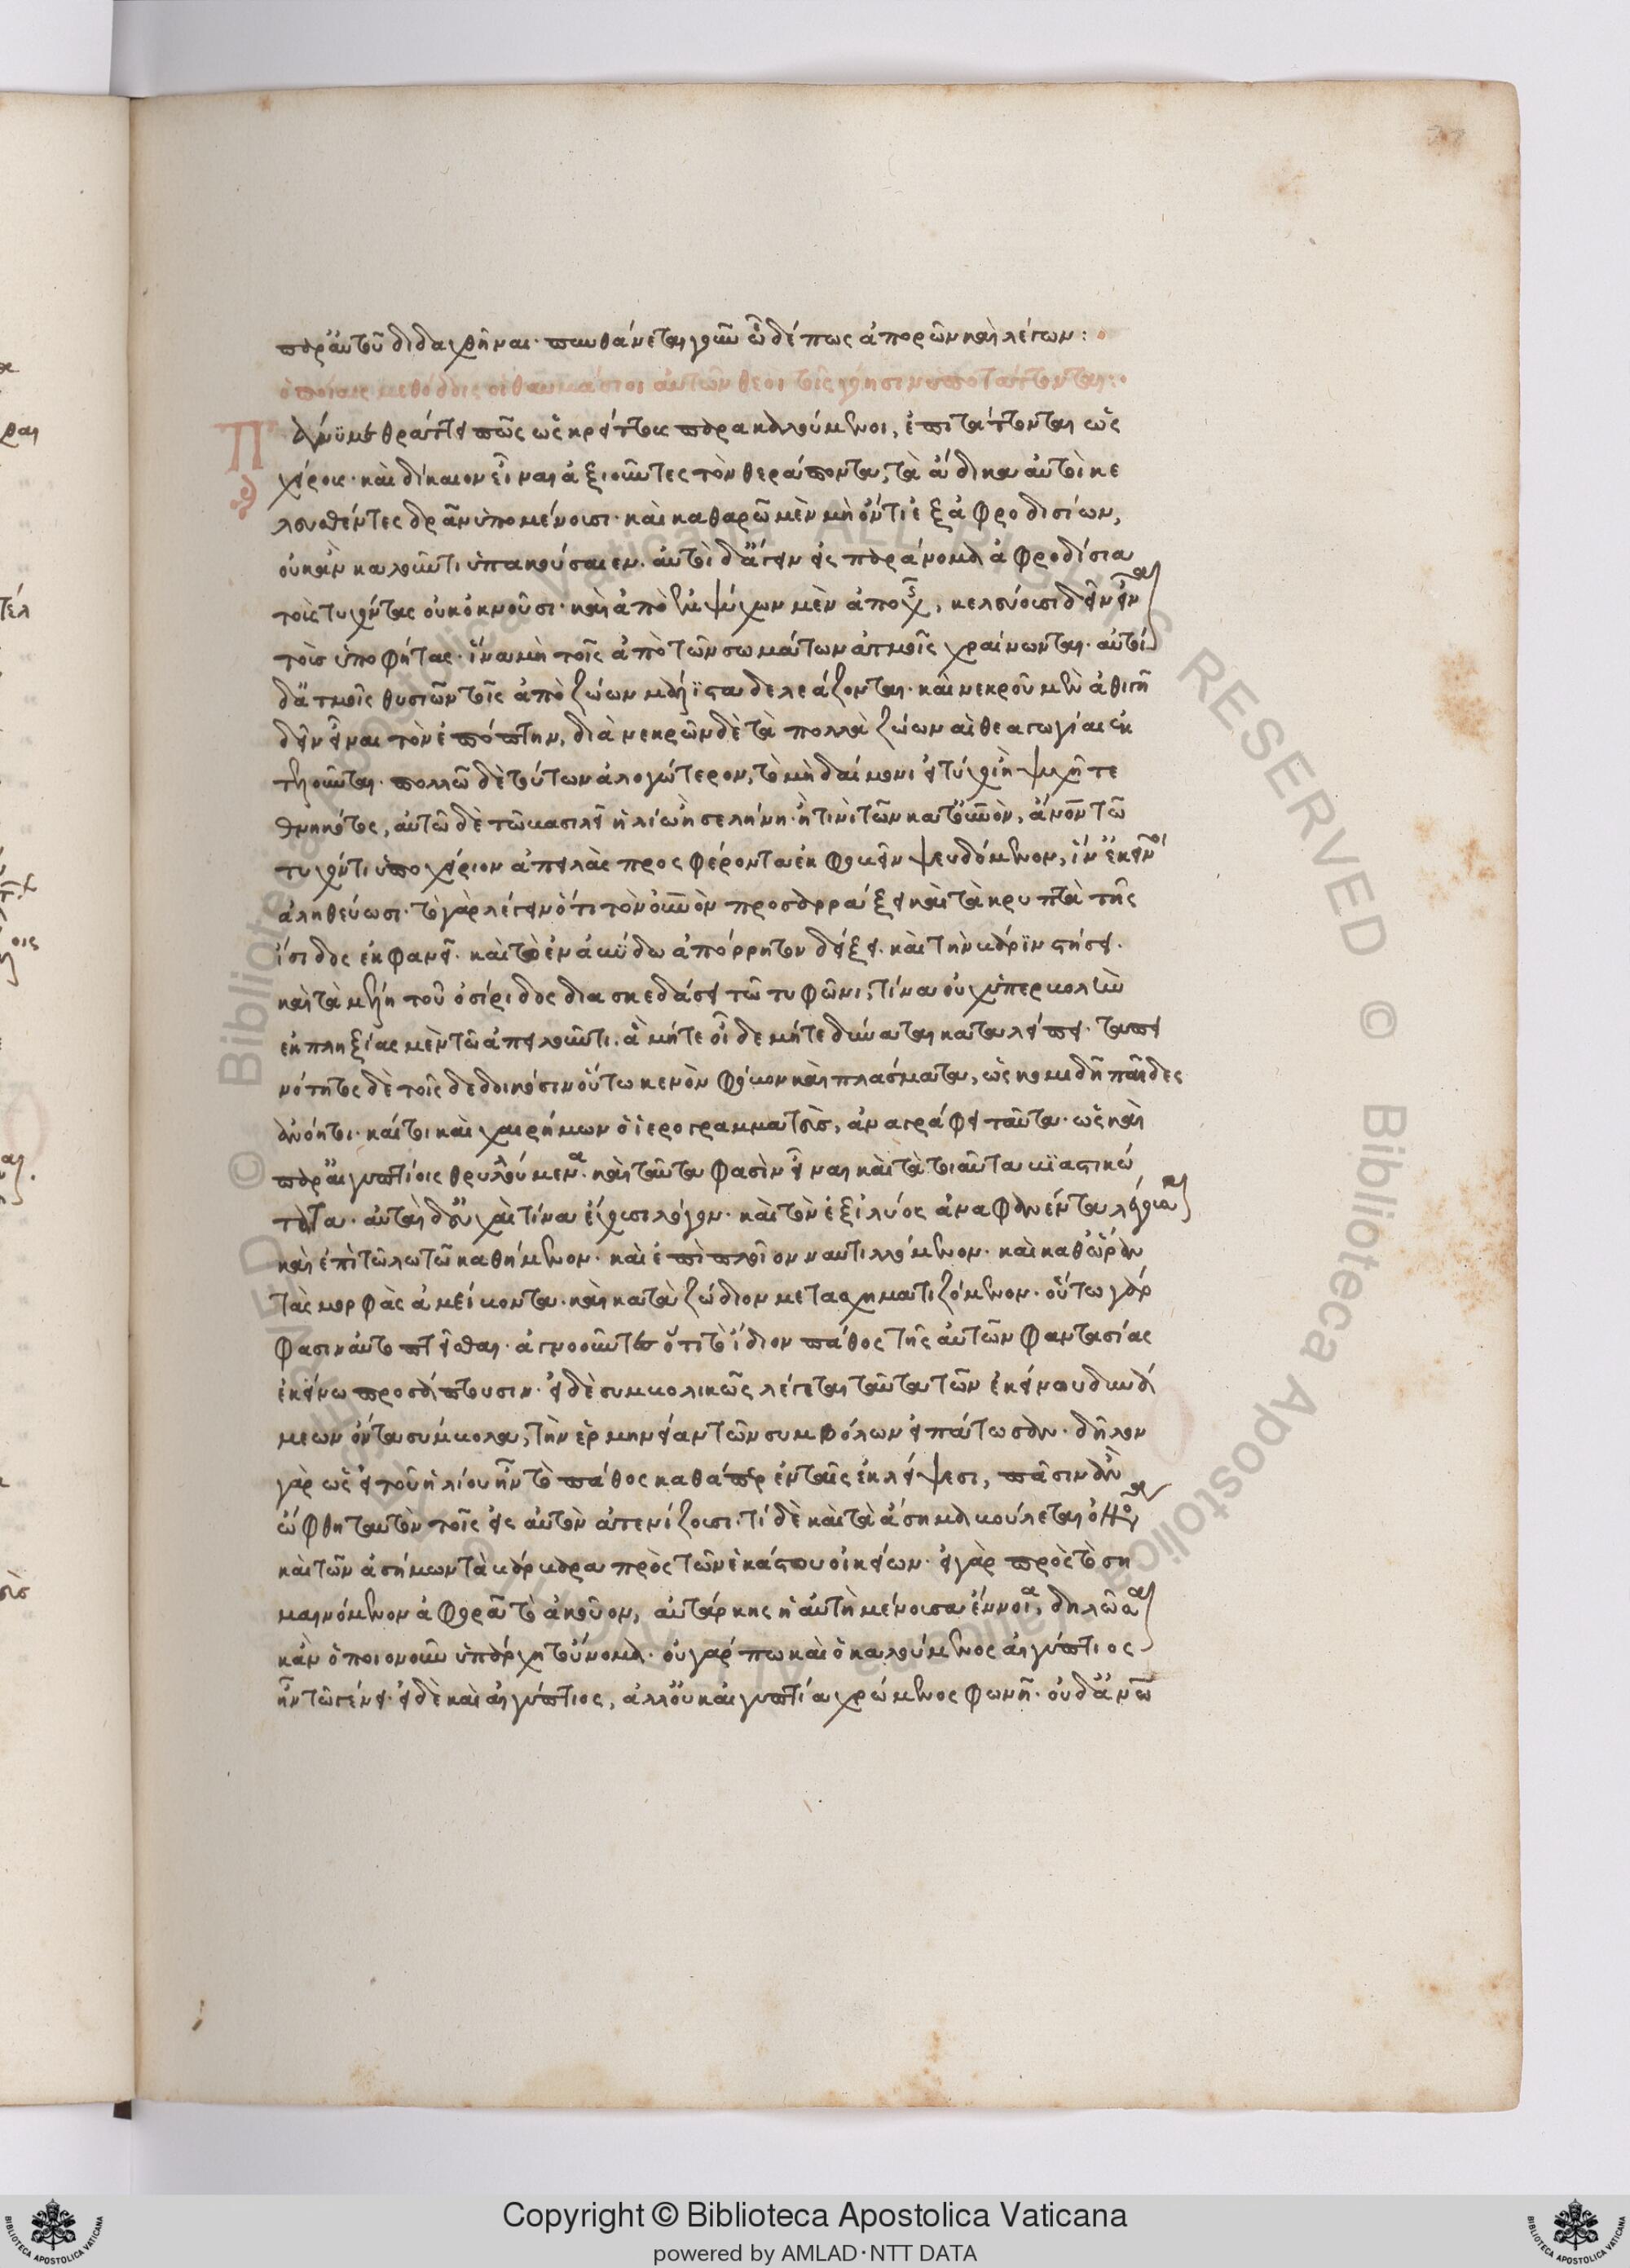 παρ' αὐτοῦ διδαχθῆναι· πυνθάνεται γοῦν ὧδέ πως ἀπορῶν καὶ λέγων:
ὁποίαις μεθόδοις οἱ θαυμάσιοι αὐτῶν θεοὶ τοῖς γόησιν ὑποτάττονται:
Πάνυ με θράττει πῶς ὡς κρείττους παρακαλούμενοι, ἐπιτάττονται ὡς
χείρους· καὶ δίκαιον εἶναι ἀξιοῦντες τὸν θεράποντα, τὰ ἄδικα αὐτοὶ κε
λευσθέντες δρᾶν ὑπομένουσι· καὶ καθαρῷ μὲν μὴ ὄντι ἐξ ἀφροδισίων,
οὐκ ἂν καλοῦντι ὑπακούσαιεν. αὐτοὶ δ' ἄγειν εἰς παράνομα ἀφροδίσια
τοὺς τυχόντας οὐκ ὀκνοῦσι· καὶ ἀπὸ ἐμψύχων μὲν ἀποχῆς, κελεύουσι δεῖν εἶναι
τοὺς ὑποφήτας· ἵνα μὴ τοῖς ἀπὸ τῶν σωμάτων ἀτμοῖς χραίνωνται. αὐτοὶ
δ' ἀτμοῖς θυσιῶν τοῖς ἀπὸ ζώων μάλιστα δελεάζονται· καὶ νεκροῦ μὲν ἀθιγῆ
δεῖν εἶναι τὸν ἐπόπτην, διὰ νεκρῶν δὲ τὰ πολλὰ ζώων αἱ θεαγωγίαι ἐκ
τελοῦνται. πολλῷ δὲ τούτων ἀλογώτερον, τὸ μὴ δαίμονι εἰ τύχοι ἢ ψυχῇ τε
θνηκότος, αὐτῷ δὲ τῷ βασιλεῖ ἡλίῳ ἢ σελήνῃ ἤ τινι τῶν κατ' οὐρανὸν, ἄνθρωπον τῷ
τυχόντι ὑποχείριον ἀπειλὰς προσφέροντα ἐκφοβεῖν ψευδόμενον, ἵν' ἐκεῖνοι
ἀληθεύωσι· τὸ γὰρ λέγειν ὅτι τὸν οὐρανὸν προσαρράξει καὶ τὰ κρυπτὰ τῆς
ἴσιδος ἐκφανεῖ· καὶ τὸ ἐν ἀβύδῳ ἀπόρρητον δείξει. καὶ τὴν βάριν στήσει.
καὶ τὰ μέλη τοῦ ὀσίριδος διασκεδάσει τῷ τυφῶνι, τίνα οὐχ ὑπερβολὴν
ἐκπληξίας μὲν τῷ ἀπειλοῦντι. ἃ μήτε οἶδε μήτε δύναται καταλείπει· ταπει
νότητος δὲ τοῖς δεδοικόσιν οὕτω κενὸν φόβον καὶ πλάσματα, ὡς κομιδῇ παῖδες
ἀνόητοι· καίτοι καὶ χαιρήμων ὁ ἱερογραμματεὺς, ἀναγράφει ταῦτα· ὡς καὶ
παρ' αἰγυπτίοις θρυλλούμενα· καὶ ταῦτα φασὶν εἶναι καὶ τὰ τοιαῦτα βιαστικώ
τατα. αὗται δ' εὐχαὶ τίνα ἔχουσι λόγον· καὶ τὸν ἐξ ἰλύος ἀναφανέντα λέγουσαι
καὶ ἐπὶ τῷ λωτῷ καθήμενον· καὶ ἐπὶ πλοῖον ναυτιλλόμενον· καὶ καθ' ὥραν
τὰς μορφὰς ἀμείβοντα. καὶ κατὰ ζώδιον μετασχηματιζόμενον· οὕτω γάρ
φασιν αὐτοπτεῖσθαι· ἀγνοοῦντες ὅτι τὸ ἴδιον πάθος τῆς αὐτῶν φαντασίας
ἐκείνῳ προσάπτουσιν· εἰ δὲ συμβολικῶς λέγεται ταῦτα τῶν ἐκείνου δυνά
μεων ὄντα σύμβολα, τὴν ἑρμηνείαν τῶν συμβόλων εἰπάτωσαν· δῆλον
γὰρ ὡς εἰ τοῦ ἡλίου ἦν τὸ πάθος καθάπερ ἐν ταῖς ἐκλείψεσι, πᾶσιν ἂν
ὤφθη ταυτὸν τοῖς εἰς αὐτὸν ἀτενίζουσι. τί δὲ καὶ τὰ ἄσημα βούλεται ὀνόματα
καὶ τῶν ἀσήμων τὰ βάρβαρα πρὸ τῶν ἑκάστου οἰκείων· εἰ γὰρ πρὸς τὸ ση
μαινόμενον ἀφορᾷ τὸ ἀκοῦον, αὐτάρκης ἡ αὐτὴ μένουσα ἔννοια, δηλῶσαι
κἂν ὁποιονοῦν ὑπάρχῃ τοὔνομα. οὐ γάρ που καὶ ὁ καλούμενος αἰγύπτιος
ἦν τῷ γένει· εἰ δὲ καὶ αἰγύπτιος, ἀλλ' οὔκ αἰγυπτίᾳ χρώμενος φωνῇ. οὐδ' ἀνω